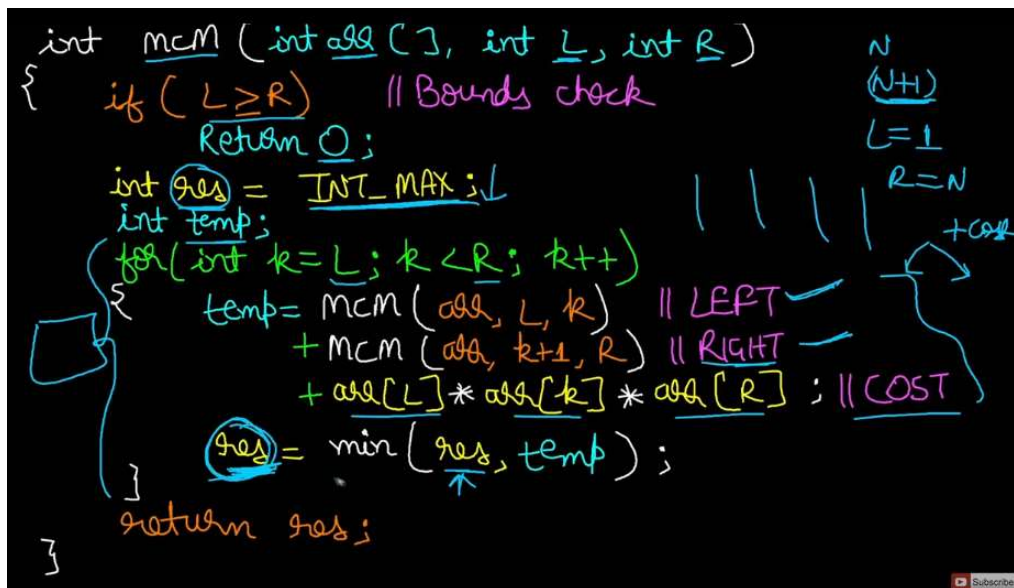 int MCM (int arr [], int L, int R)
{
if ( L ≥ R) || Bounds check
Return 0;
int res = INT_MAX ; ↓
int temp;
for( int k = L; k < R; k++)
{
temp = MCM ( arr, L, k ) || LEFT
+ MCM ( arr, k+1, R ) || RIGHT
+ arr[L] * arr[k] * arr[R] ; || COST
res = min ( res, temp ) ;
}
return res;
}
N
(N+1)
L = 1
R = N
+cost
Subscribe